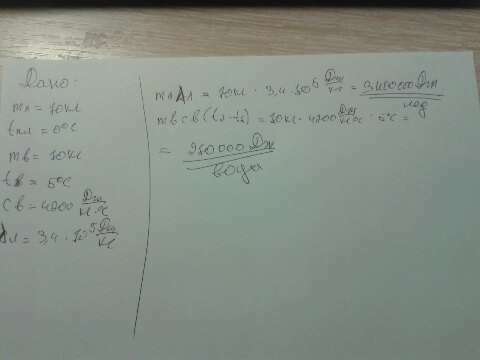 Дано:
mл = 10кг
tпл = 0°С
mв = 10кг
tв = 5°С
Св = 4200 Дж/кг·°С
λл = 3,4 · 10⁵ Дж/кг
mлλл = 10кг · 3,4 · 10⁵ Дж/кг = 3400000Дж
лед
mвсв(t₂-t₁) = 10кг · 4200 Дж/кг·°С · 5°С =
= 210000 Дж
вода